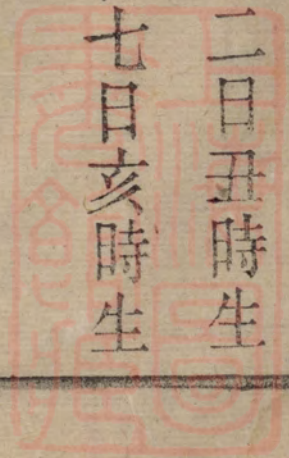 二日丑時生
七日亥時生